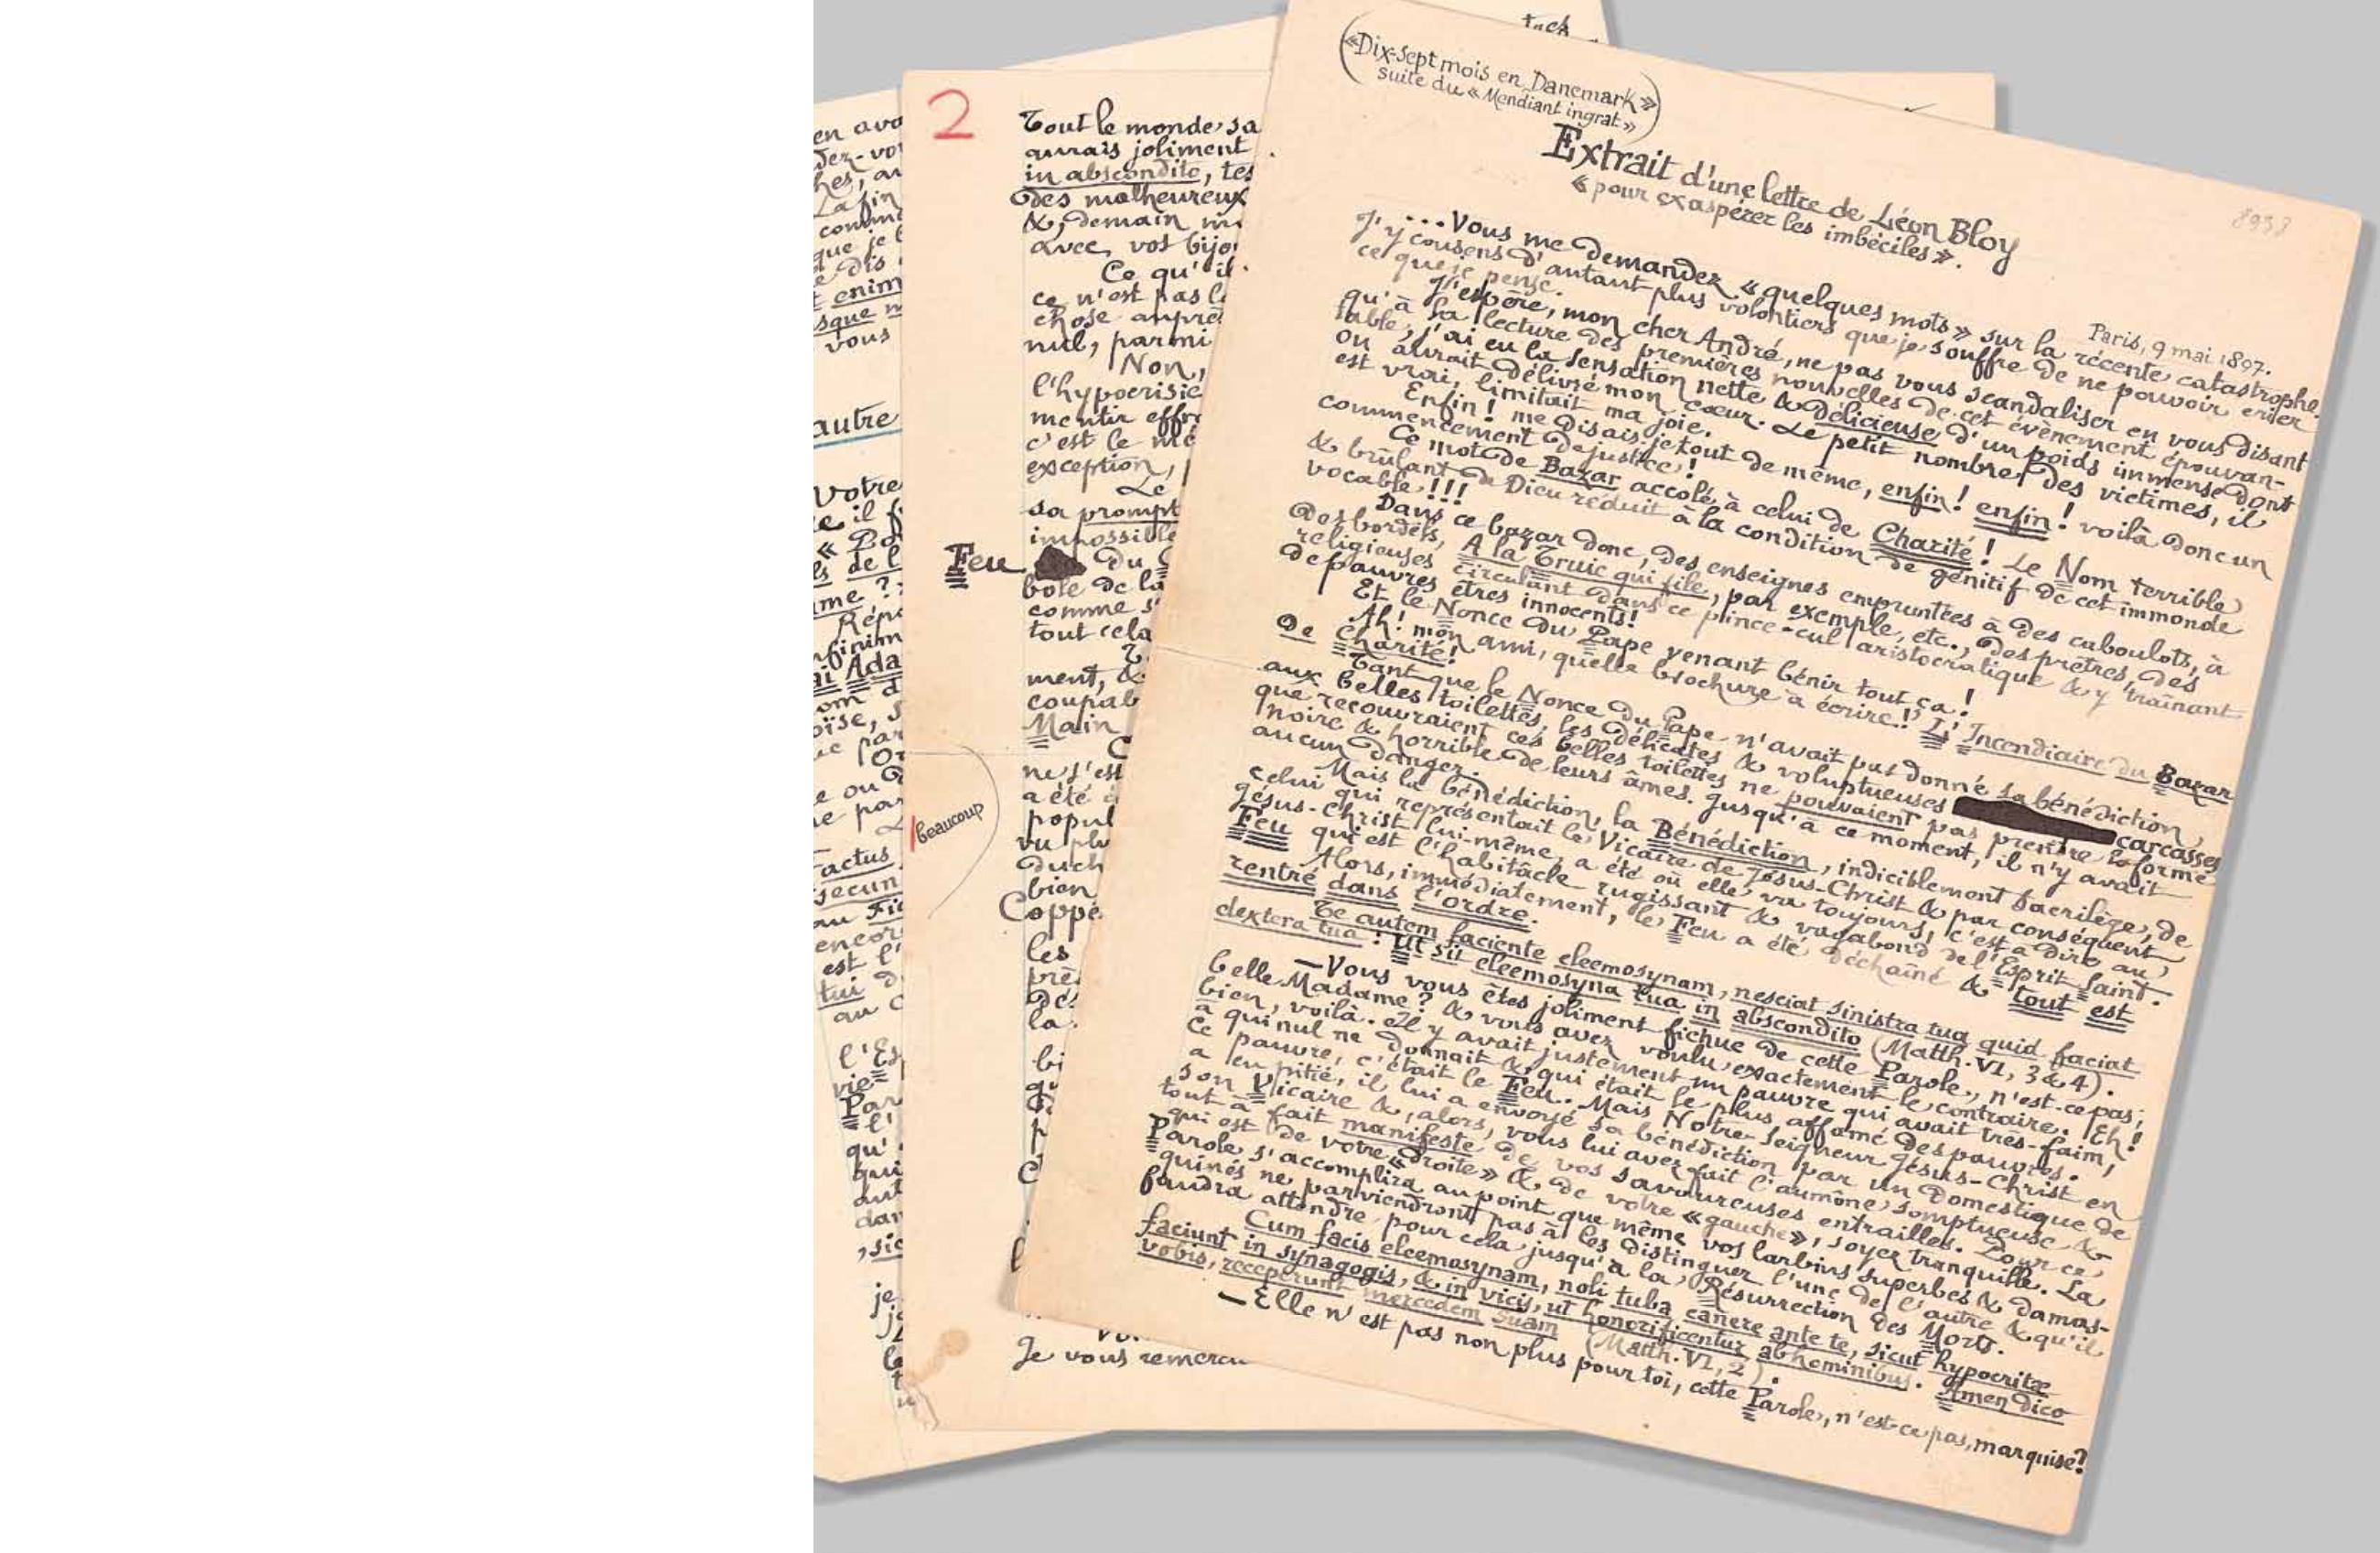 en avo
dez-vo
hes, au
La fin
comme
que je
e dis
enim
sque
vous
autre
Votre
e il
« P
ls de l
me ?
Répo
nfinim
ai Ada
om d
oïse, s
ue par
(Or
e ou d
e par
actus
secun
au Fi
encor
est l'
tui d
au C
l'Es
vie
Par
l'
qu'
qui
aut
dan
sic
je
2
Tout le monde sa
aurais joliment
in abscondito, tes
des malheureux
&, demain
avec vos bijo
Ce qu'il
ce n'est pas l
chose aupré
nul, parmi
Non,
l'hypocrisie
mentir effro
c'est le mê
exception,
Le
sa prompt
impossible
Feu du
bole de la
comme s
tout cela
ment, &
coupab
Main
C
ne s'est
a été
popul
beaucoup
vu plu
duch
bien
Coppé
les
prê
dés
la
bi
qu
Je vous remerci
(«Dix-sept mois en Danemark»
suite du «Mendiant ingrat»)
Extrait d'une lettre de Léon Bloy
«pour exaspérer les imbéciles».
8933
Paris, 9 mai 1897.
...Vous me demandez «quelques mots» sur la récente catastrophe.
J'y consens d'autant plus volontiers que je souffre de ne pouvoir crier
ce que je pense.
J'espère, mon cher André, ne pas vous scandaliser en vous disant
qu'à la lecture des premières nouvelles de cet évènement épouvan-
table, j'ai eu la sensation nette & délicieuse d'un poids immense dont
on aurait délivré mon cœur. Le petit nombre des victimes, il
est vrai, limitait ma joie.
Enfin! me disais-je tout de même, enfin! enfin! voilà donc un
commencement de justice!
Ce mot de Bazar accolé à celui de Charité! Le Nom terrible
& brûlant de Dieu réduit à la condition de génitif de cet immonde
vocable!!!
Dans ce bazar donc, des enseignes empruntées à des caboulots, à
des bordels, A la Truie qui file, par exemple, etc., des prêtres, des
religieuses circulant dans ce pince-cul aristocratique & y traînant
de pauvres êtres innocents!
Et le Nonce du Pape venant bénir tout ça!
Ah! mon ami, quelle brochure à écrire! L'Incendiaire du Bazar
de Charité!
Tant que le Nonce du Pape n'avait pas donné sa bénédiction
aux belles toilettes, les délicates & voluptueuses carcasses
que recouvraient ces belles toilettes ne pouvaient pas prendre la forme
noire & horrible de leurs âmes. Jusqu'à ce moment, il n'y avait
aucun danger.
Mais la bénédiction, la Bénédiction, indiciblement sacrilège, de
celui qui représentait le Vicaire de Jésus-Christ & par conséquent
Jésus-Christ lui-même, a été où elle va toujours, c'est à dire au
Feu qui est l'habitâcle rugissant & vagabond de l'Esprit Saint.
Alors, immédiatement, le Feu a été déchaîné & tout est
rentré dans l'ordre.
Te autem faciente eleemosynam, nesciat sinistra tua quid faciat
dextera tua: Ut sit eleemosyna tua in abscondito (Matth. VI, 3 & 4).
—Vous vous êtes joliment fichue de cette Parole, n'est-ce pas,
belle Madame? & vous avez voulu exactement le contraire. Eh!
bien, voilà. Il y avait justement un pauvre qui avait très-faim,
à qui nul ne donnait & qui était le plus affamé des pauvres.
Ce pauvre, c'était le Feu. Mais Notre-Seigneur Jésus-Christ en
a eu pitié, il lui a envoyé sa bénédiction par un domestique de
son Vicaire &, alors, vous lui avez fait l'aumône somptueuse &
tout à fait manifeste de vos savoureuses entrailles. Pour ce
qui est de votre «droite» & de votre «gauche», soyez tranquille. La
Parole s'accomplira au point que même vos larbins superbes & damas-
quinés ne parviendront pas à les distinguer l'une de l'autre & qu'il
faudra attendre pour cela jusqu'à la Résurrection des Morts.
Cum facis eleemosynam, noli tuba canere ante te, sicut hypocritæ
faciunt in synagogis, & in vicis, ut honorificentur ab hominibus. Amen dico
vobis, receperunt mercedem suam (Matth. VI, 2).
—Elle n'est pas non plus pour toi, cette Parole, n'est-ce pas, marquise?